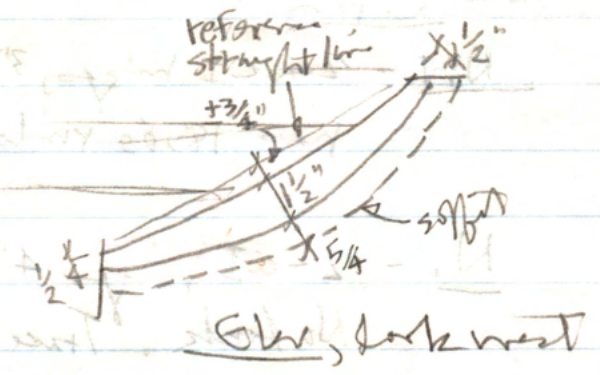 reference
straight line
1/2"
+3/4"
1/2"
soffit
1/4
1/2
5/4
Elev, look west